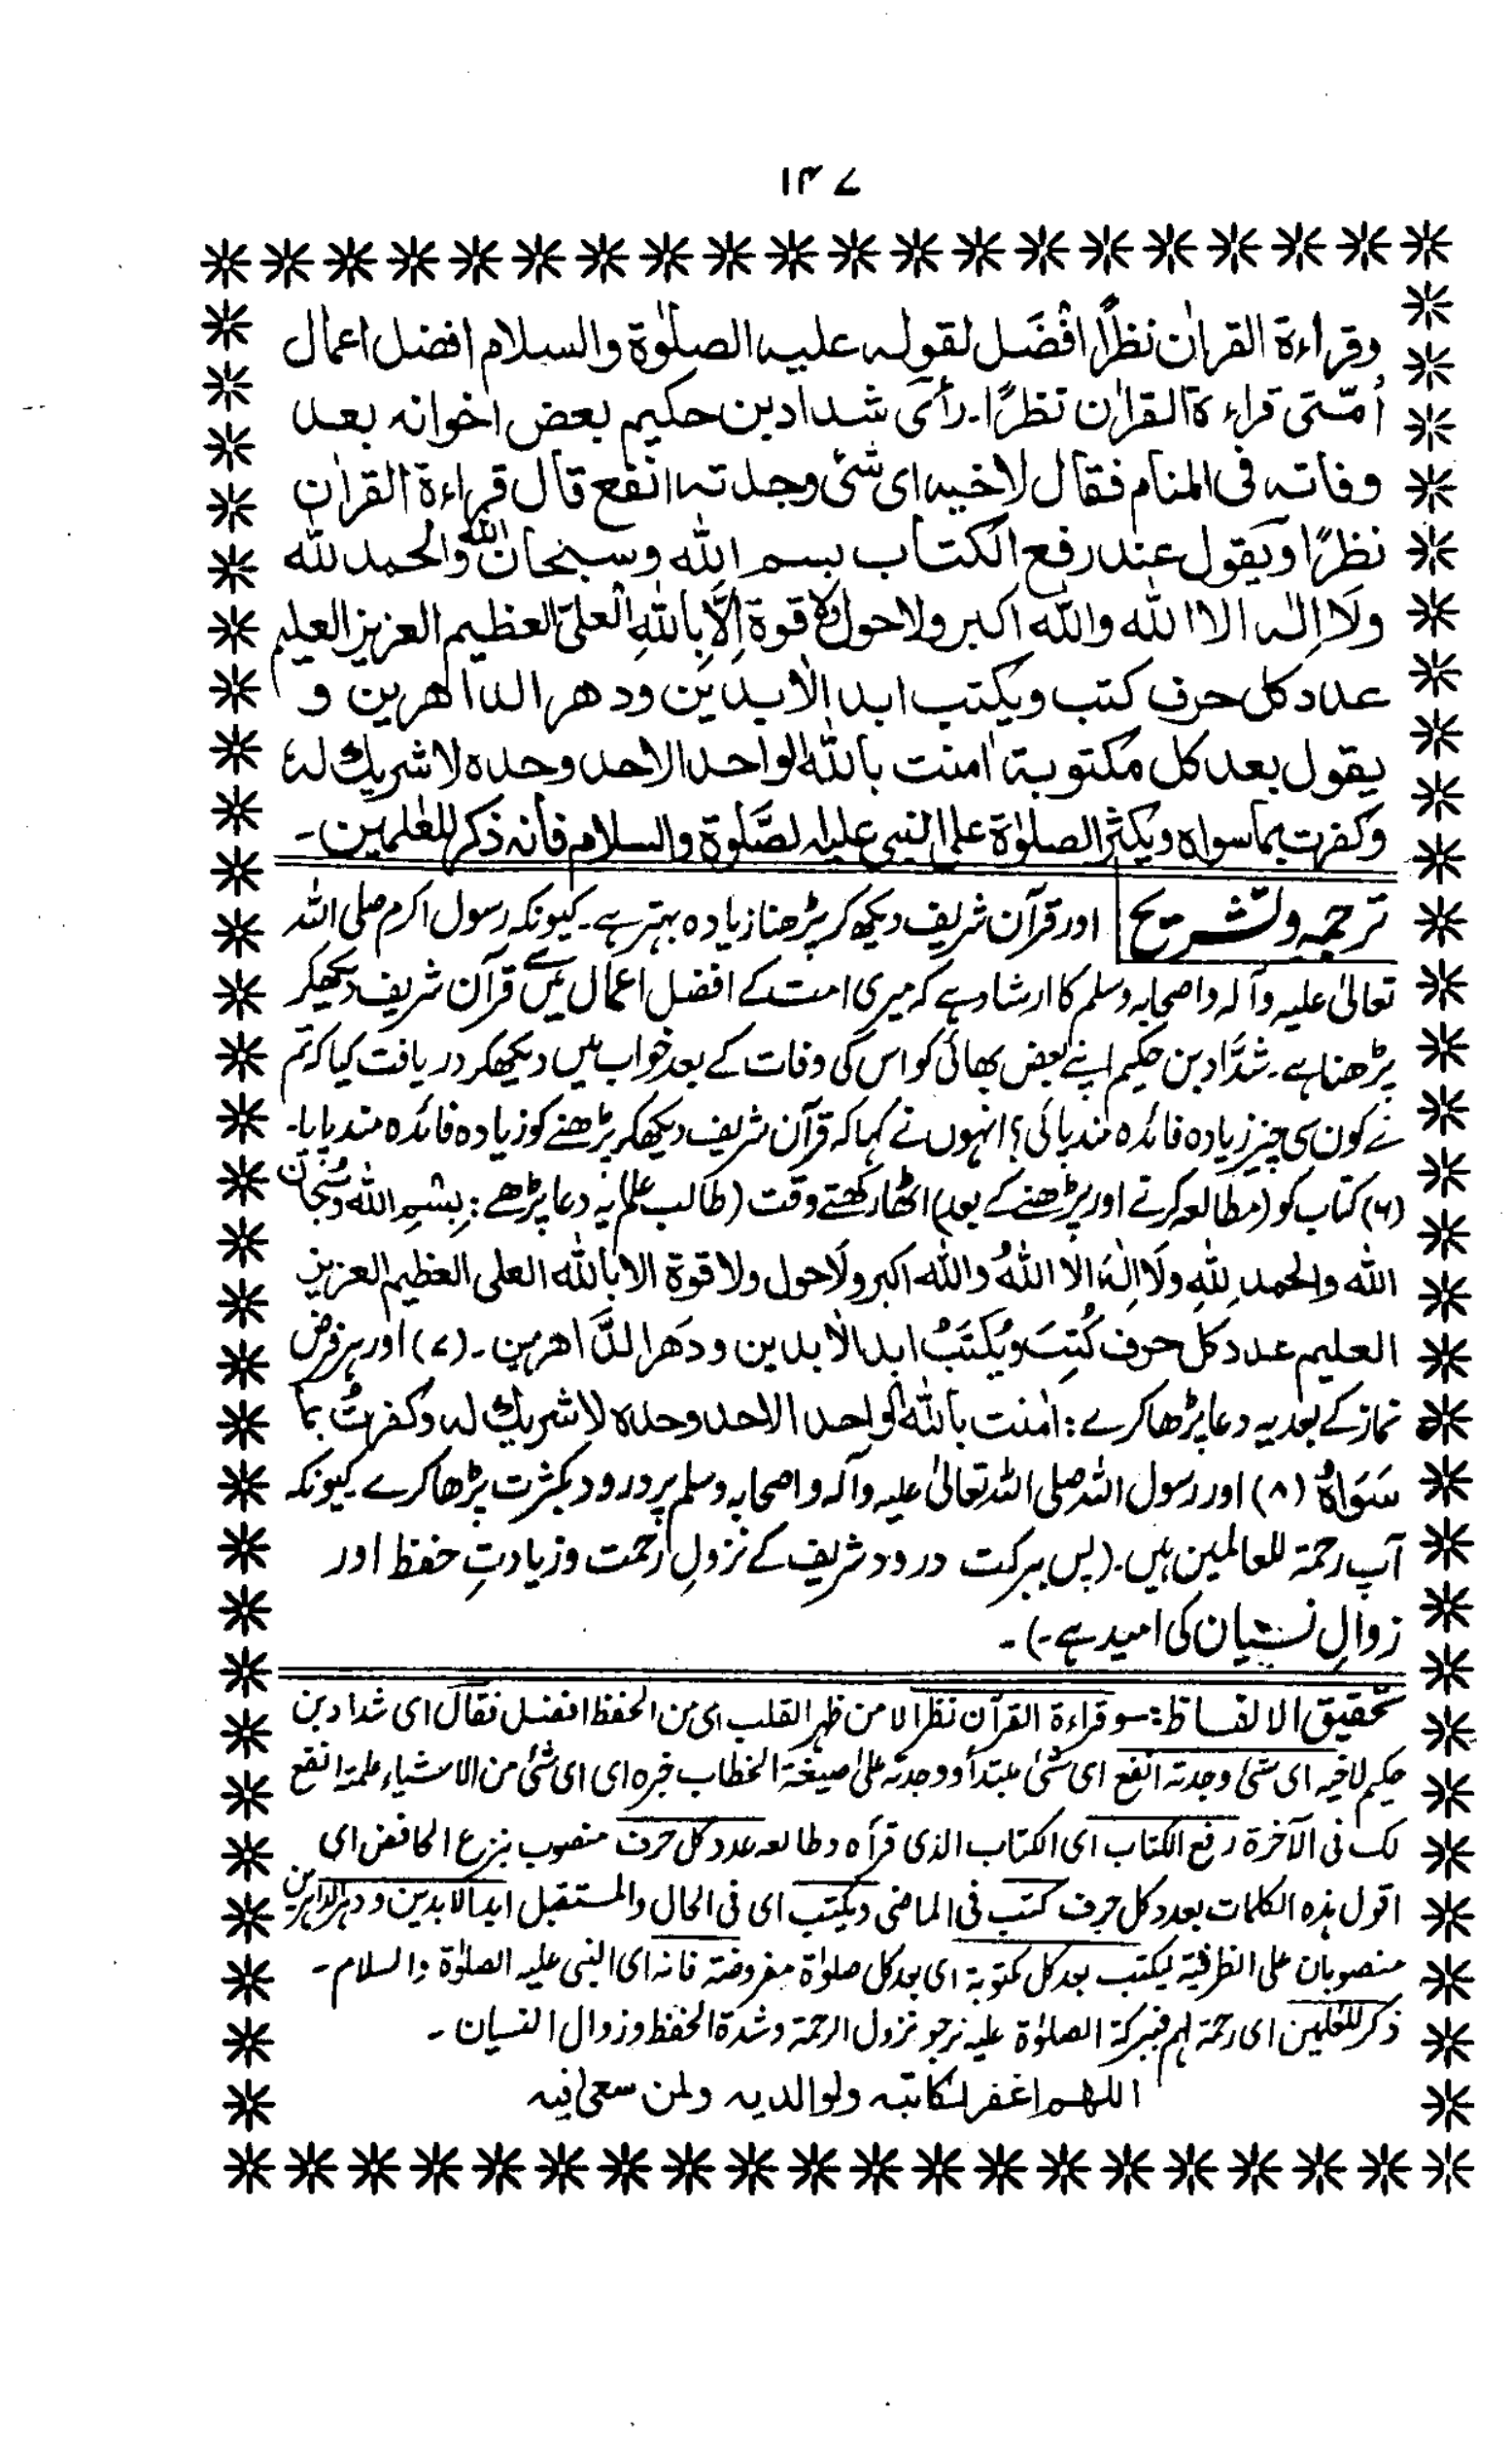 ۱۴۷
وقراءة القراٰن نظرًا افْضَل لقوله عليه الصلوٰة والسلام افضل اعمال
اُمّتى قراءة القراٰن نظرًا۔ رأى شداد بن حكيم بعض اخوانه بعد
وفاته فى المنام فقال لاخيه اى شئ وجدته انفع قال قراءة القراٰن
نظرًا ويقول عند رفع الكتاب بسم الله وسبحان الله والحمد لله
ولَا اِلٰه الا الله والله اكبر ولا حول ولا قوة اِلَّا باللهِ العلىّ العظيم العزيز العليم
عدد كل حرف كتب ويكتب ابد الاٰبدين ودهر الداهرين و
يقول بعد كل مكتوبة اٰمنت بالله الواحد الاحد وحده لا شريك له
وكفرت بما سواه ويكثر الصلوٰة على النبى عليه الصَّلوٰة والسلام فانه ذكر للعٰلمين۔
ترجمہ وتشریح اور قرآن شریف دیکھ کر پڑھنا زیادہ بہتر ہے۔ کیونکہ رسول اکرم صلی اللہ
تعالیٰ علیہ وآلہ واصحابہ وسلم کا ارشاد ہے کہ میری امت کے افضل اعمال میں سے قرآن شریف دیکھکر
پڑھنا ہے۔ شدَّاد بن حکیم اپنے بعض بھائی کو اس کی وفات کے بعد خواب میں دیکھکر دریافت کیا کہ تم
نے کون سی چیز زیادہ فائدہ مند پائی؟ انہوں نے کہا کہ قرآن شریف دیکھکر پڑھنے کو زیادہ فائدہ مند پایا۔
(۶) کتاب کو (مطالعہ کرتے اور پڑھنے کے بعد) اٹھا رکھتے وقت (طالب علم) یہ دعا پڑھے: بِسْمِ الله وسُبْحَان
الله والحمد لِلّٰهِ ولَا اِلٰهَ الا اللهُ والله اكبر ولَا حول ولا قوة الا بالله العلى العظيم العزيز
العليم عدد كل حرف كُتِبَ ويُكْتَبُ ابد الاٰبدين ودَهرَ الدَّاهرين۔ (۷) اور ہر فرض
نماز کے بعد یہ دعا پڑھا کرے: اٰمنت بالله الواحد الاحد وحده لا شريك له وكفرتُ بما
سَوَاهُ (۸) اور رسول اللہ صلی اللہ تعالیٰ علیہ وآلہ واصحابہ وسلم پر درود بکثرت پڑھا کرے کیونکہ
آپ رحمۃ للعالمین ہیں۔ (پس ببرکت درود شریف کے نزولِ رحمت وزیادتِ حفظ اور
زوالِ نسیان کی امید ہے۔)۔
تحقیق الالفاظ:۔ وقراءة القرآن نظرا لا من ظهر القلب اى من الحفظ افضل فقال اى شداد بن
حكيم لاخيه اى شئ وجدته انفع اى شئ مبتدأ ووجدته على صيغة الخطاب خبره اى اى شئ من الاشياء علمته انفع
لك فى الآخرة رفع الكتاب اى الكتاب الذى قرأه وطالعه عدد كل حرف منصوب بنزع الخافض اى
اقول هذه الكلمات بعدد كل حرف كتب فى الماضى ويكتب اى فى الحال والمستقبل ابد الابدين ودهر الداهرين
منصوبان على الظرفية ليكتب بعد كل مكتوبة اى بعد كل صلوٰة مفروضة فانه اى النبى عليه الصلوٰة والسلام۔
ذكر للعٰلمين اى رحمة لهم فببركة الصلوٰة عليه نرجو نزول الرحمة وشدة الحفظ وزوال النسيان۔
اللهم اغفر لكاتبه ولوالديه ولمن سعى فيه